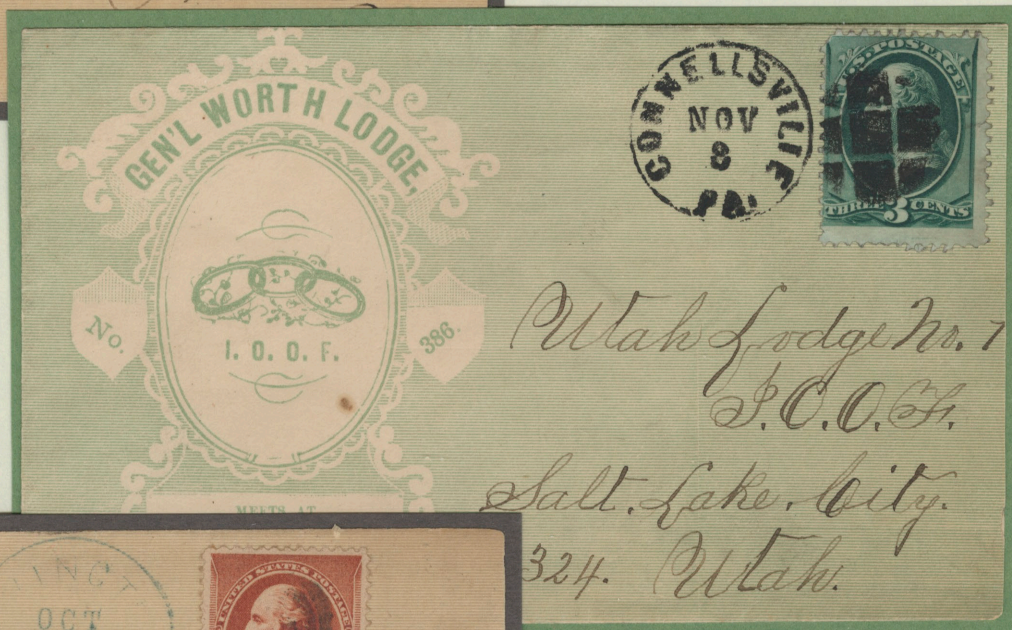 GEN'L WORTH LODGE,
No. 386.
I. O. O. F.
MEETS AT
CONNELLSVILLE
NOV
8
PA.
U.S. POSTAGE
THREE 3 CENTS
Utah Lodge No. 1
I.O.O.F.
Salt. Lake. City.
324. Utah.
OCT
UNITED STATES POSTAGE